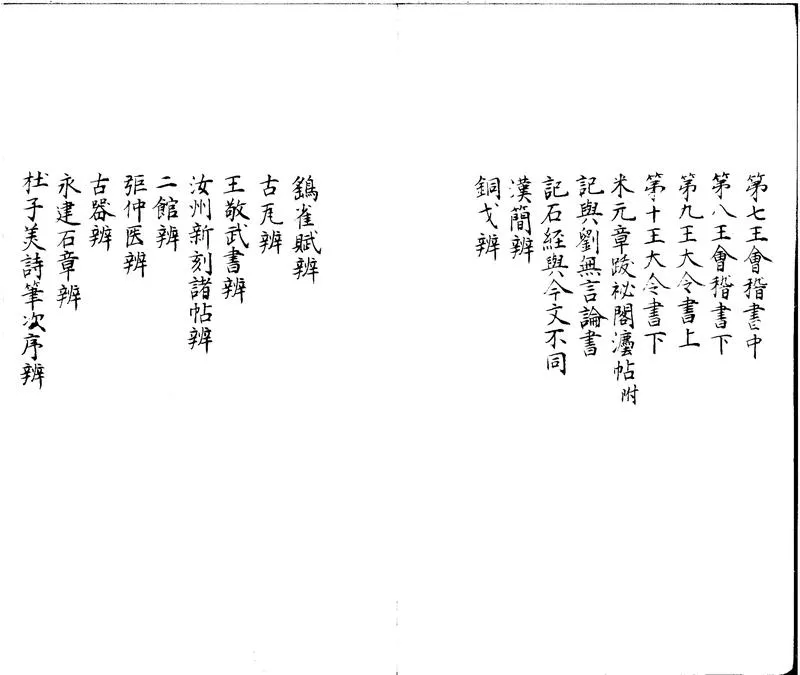 第七王會稽書中
第八王會稽書下
第九王大令書上
第十王大令書下
米元章跋祕閣灋帖附
記與劉無言論書
記石經與今文不同
漢簡辨
銅戈辨
鷁雀賦辨
古瓦辨
王敬武書辨
汝州新刻諸帖辨
二館辨
弫仲医辨
古器辨
永建石章辨
杜子美詩筆次序辨